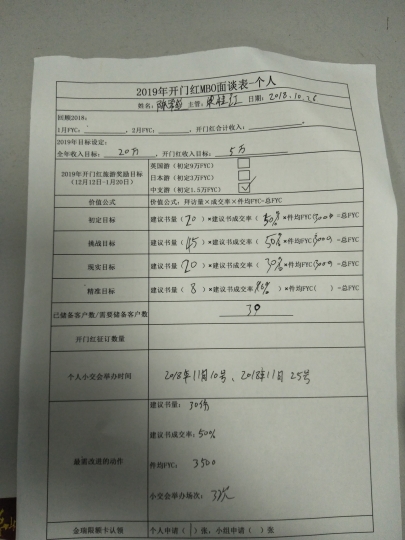 2019年开门红MBO面谈表-个人
姓名: 主管: 日期: 2018.10.26
回顾2018:
1月FYC: , 2月FYC: , 开门红合计收入:
2019年目标设定:
全年收入目标: 20万 , 开门红收入目标: 5万
2019年开门红旅游奖励目标
(12月12日-1月20日)
英国游(初定9万FYC)
日本游(初定3万FYC)
中支游(初定1.5万FYC) ✓
价值公式 价值公式: 拜访量×成交率×件均FYC=总FYC
初定目标 建议书量(20)×建议书成交率(30%×件均FYC(3000=总FYC
挑战目标 建议书量(45)×建议书成交率(50%×件均FYC(3000=总FYC
现实目标 建议书量(20)×建议书成交率(30%×件均FYC(3000=总FYC
精准目标 建议书量(8)×建议书成交率( )×件均FYC( )=总FYC
已储备客户数/需要储备客户数 39
开门红征订数量
个人小交会举办时间 2018年11月10号、2018年11月25号
能够改进的动作
建议书量: 30份
建议书成交率: 50%
件均FYC: 3500
小交会举办场次:
金瑞限额卡认领 个人申请( )张, 小组申请( )张